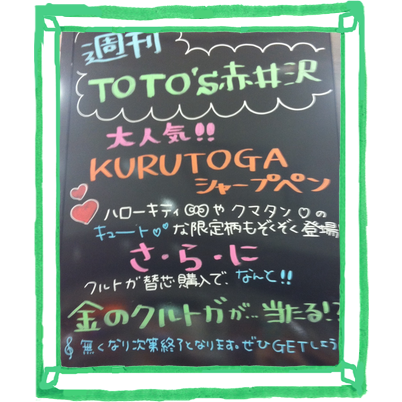 週刊
TOTO'S赤井沢
大人気!!
KURUTOGA
シャープペン
ハローキティやクマタン♡の
キュート♡♡な限定柄もぞくぞく登場
さ・ら・に
クルトガ替芯購入で、なんと!!
金のクルトガが…当たる!?
無くなり次第終了となります。ぜひGETしよう